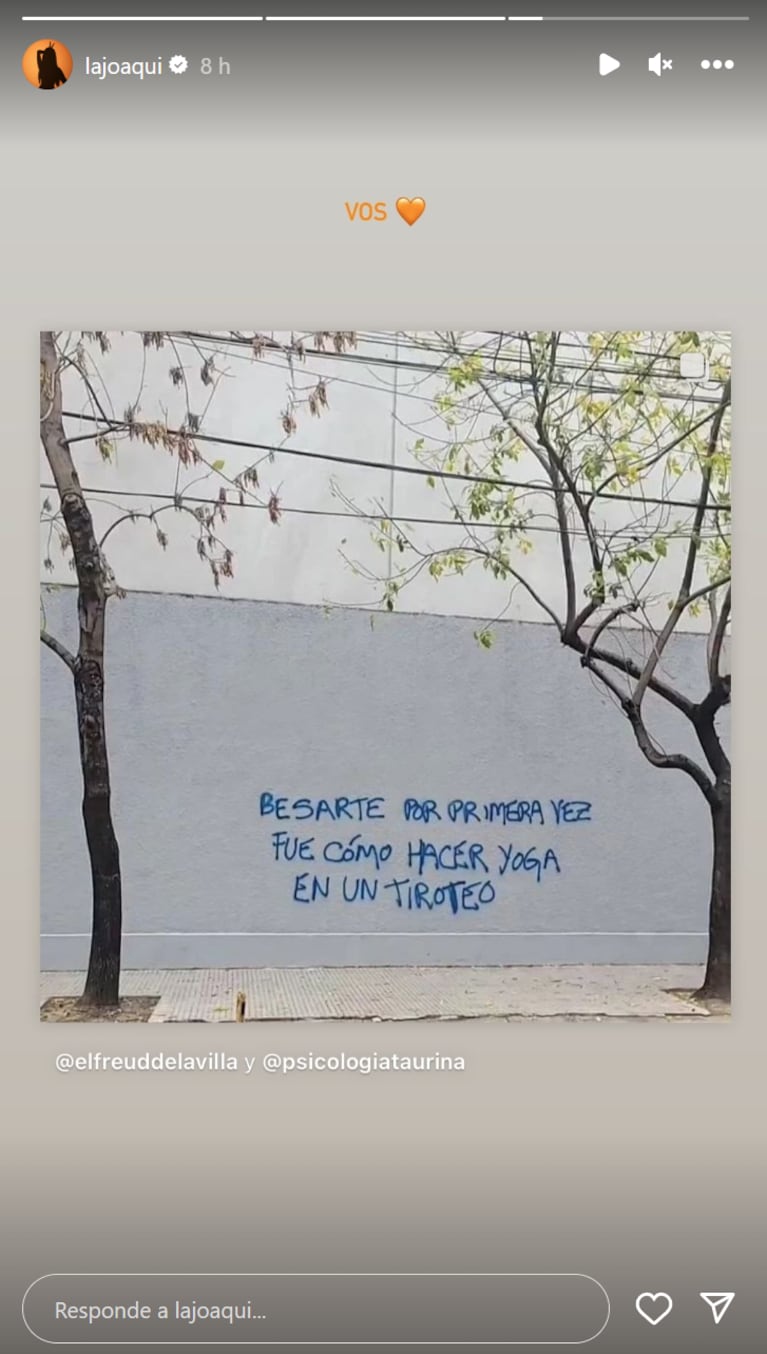 lajoaqui 8 h
VOS 🧡
BESARTE POR PRIMERA VEZ
FUE CÓMO HACER YOGA
EN UN TIROTEO
@elfreuddelavilla y @psicologiataurina
Responde a lajoaqui...